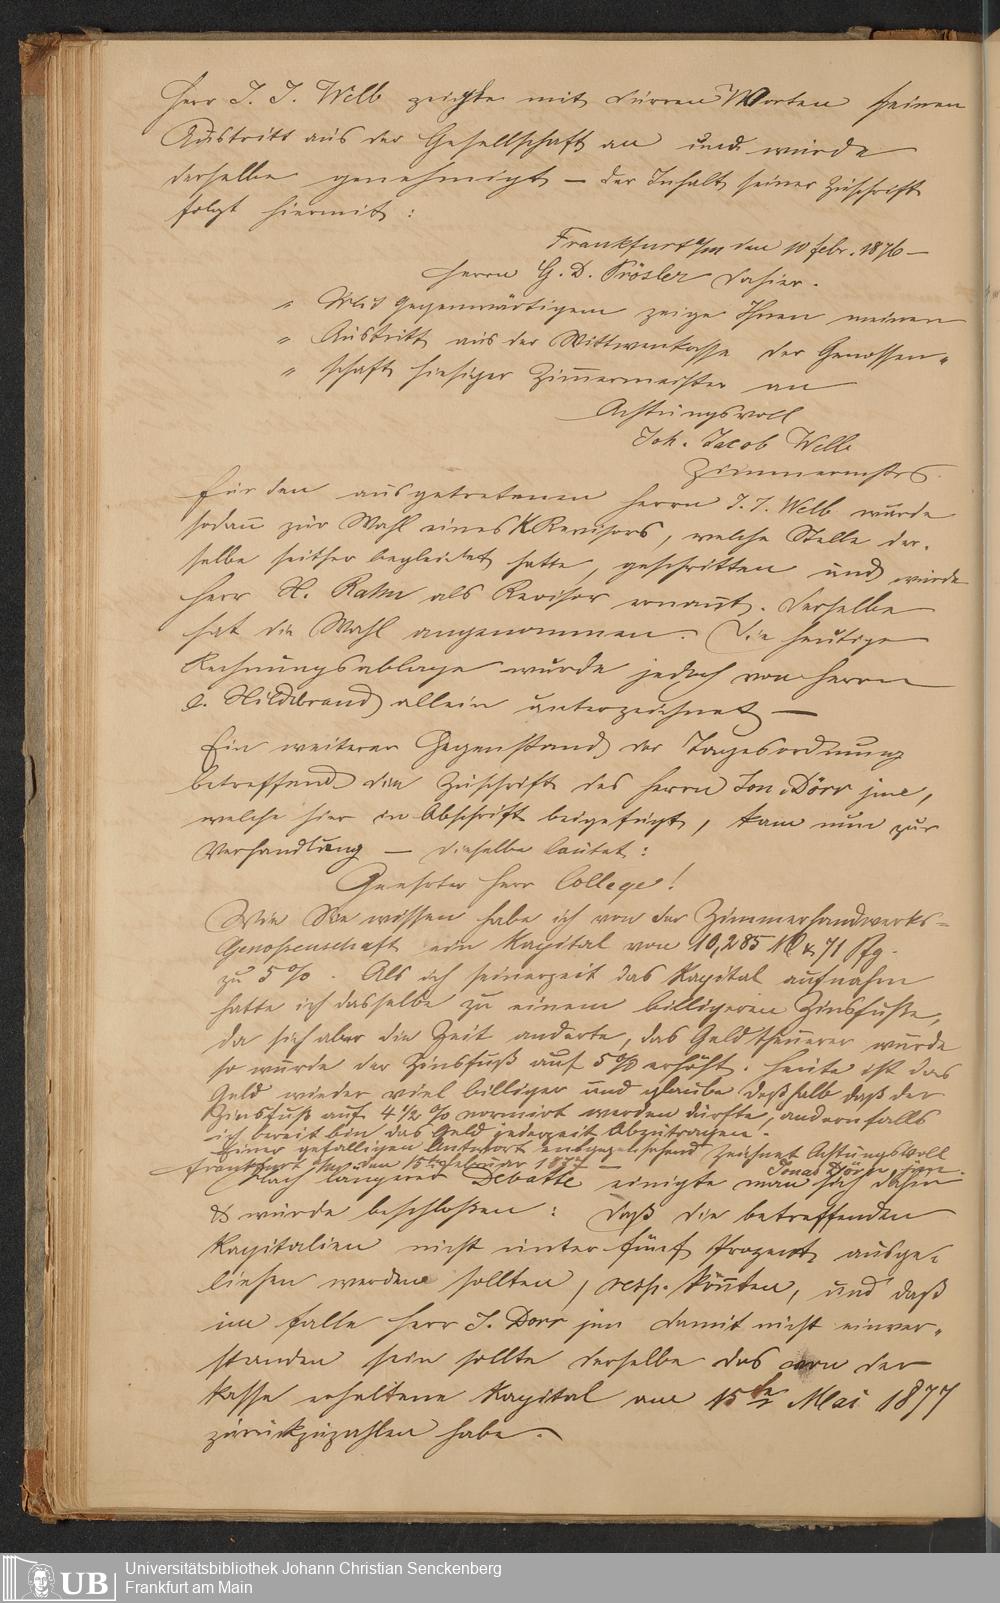 Herr J. J. Welb zeigte mit dürren Worten seinen
Austritt aus der Gesellschaft an und wurde
derselbe genehmigt — der Inhalt seiner Zuschrift
folgt hiermit:
Frankfurt a/m den 10 febr. 1876 —
Herrn G. D. Prösler dahier.
" Mit Gegenwärtigem zeige Ihnen meinen
" Austritt aus der Wittwenkasse der Genossen-
" schaft hiesiger Zimmermeister an
Achtungsvoll
Joh. Jacob Welb
Zimmermstr.
Für den ausgetretenen Herrn J. J. Welb wurde
sodann zur Wahl eines Revisors, welche Stelle der-
selbe seither begleitet hatte, geschritten und wurde
Herr H. Rahn als Revisor ernannt. Derselbe
hat die Wahl angenommen. Die heutige
Rechnungsablage wurde jedoch von Herrn
Hildebrand allein unterzeichnet —
Ein weiterer Gegenstand der Tagesordnung
betreffend die Zuschrift des Herrn Jon. Dörr jun,
welche hier in Abschrift beigefügt, kam nun zur
Verhandlung — dieselbe lautet:
Geehrter Herr College!
Wie Sie wissen habe ich von der Zimmerhandwerks-
Genossenschaft ein Kapital von 10,285 M & 71 Pfg.
zu 5 %. Als ich seinerzeit das Kapital aufnahm
hatte ich dasselbe zu einem billigeren Zinsfuße,
da sich aber die Zeit änderte, das Geld theuerer wurde
so wurde der Zinsfuß auf 5 % erhöht. Heute ist das
Geld wieder viel billiger und glaube deßhalb daß der
Zinsfuß auf 4 1/2 % normirt werden dürfte, andernfalls
ich bereit bin das Geld jederzeit abzutragen.
Einer gefälligen Antwort entgegensehend zeichnet Achtungsvoll
Frankfurt a/m den 15ten Februar 1877 — Jonas Dörr jun.
Nach längerer Debatte einigte man sich dahin
& wurde beschloßen: daß die betreffenden
Kapitalien nicht unter fünf Prozent ausge-
liehen werden sollten, resp. könnten, und daß
im Falle Herr J. Dörr jun damit nicht einver-
standen sein sollte derselbe das von der
Kasse erhaltene Kapital am 15ten Mai 1877
zurückzuzahlen habe.
UB
Universitätsbibliothek Johann Christian Senckenberg
Frankfurt am Main